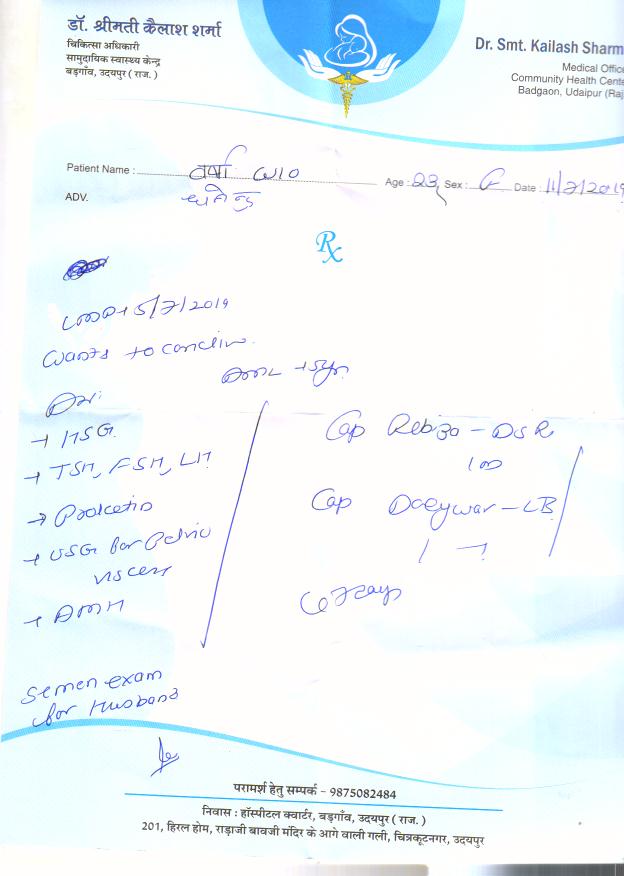 डॉ. श्रीमती कैलाश शर्मा
चिकित्सा अधिकारी
सामुदायिक स्वास्थ्य केन्द्र
बड़गाँव, उदयपुर ( राज. )
Dr. Smt. Kailash Sharm
Medical Office
Community Health Cente
Badgaon, Udaipur (Raj
Patient Name : वर्षा w/o Age : 23 Sex : F Date : 11/7/2019
ADV.
Rx
LMP → 5/7/2019
wants to conceive.
Adv:
→ HSG
→ TSH, FSH, LH
→ Prolactin
→ USG for Pelvic
viscera
→ AMH
Semen exam
for Husband
Cap Rebiza - DSR
1 OD
Cap - LB
परामर्श हेतु सम्पर्क – 9875082484
निवास : हॉस्पीटल क्वार्टर, बड़गाँव, उदयपुर ( राज. )
201, हिरल होम, राड़ाजी बावजी मंदिर के आगे वाली गली, चित्रकूटनगर, उदयपुर